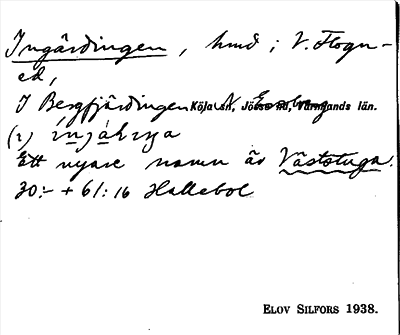 Ingärdingen, hmd i V. Fogn-
ed,
I Bergfjärdingen Köla sn, Jösse hd, Värmlands län.
(2)
Ett nyare namn är Väststuga.
30:- + 61:16 Hallebol
ELOV SILFORS 1938.